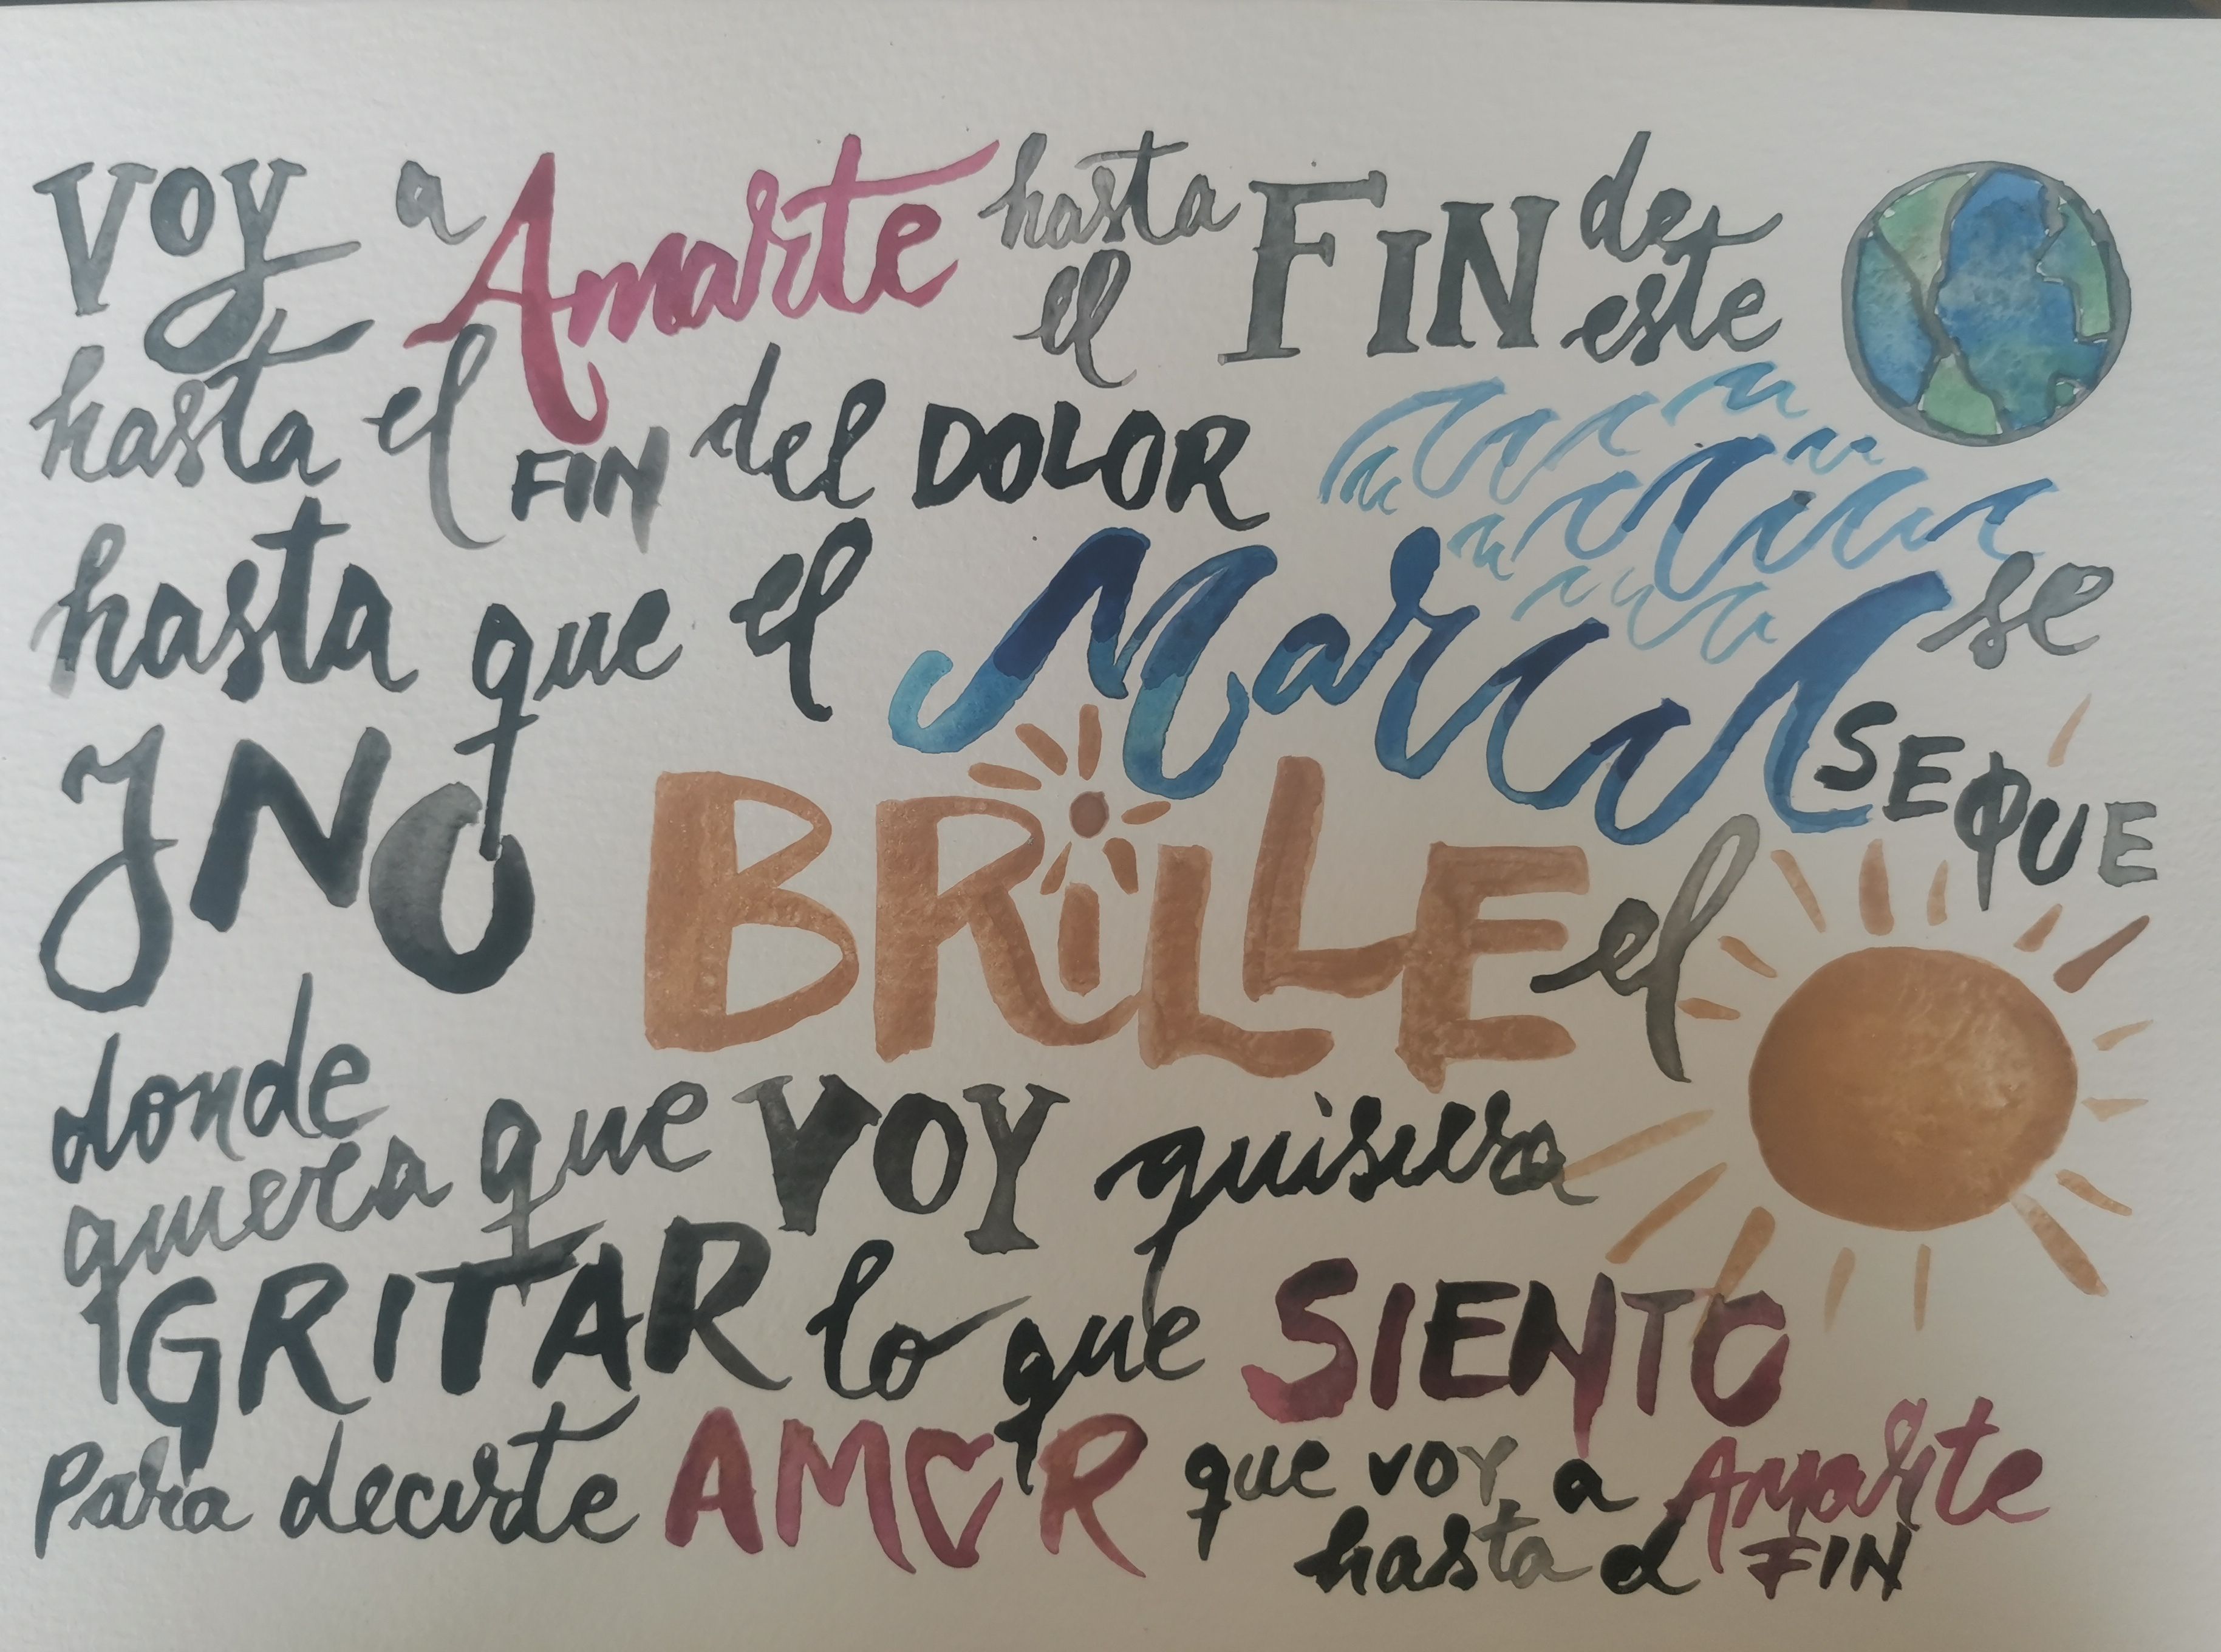 Voy a Amarte hasta el FIN de este
hasta el FIN del DOLOR
hasta que el Mar se SEQUE
Y NO BRILLE el
donde quiera que VOY quisiera
GRITAR lo que SIENTO
Para decirte AMOR que voy a Amarte
hasta el FIN